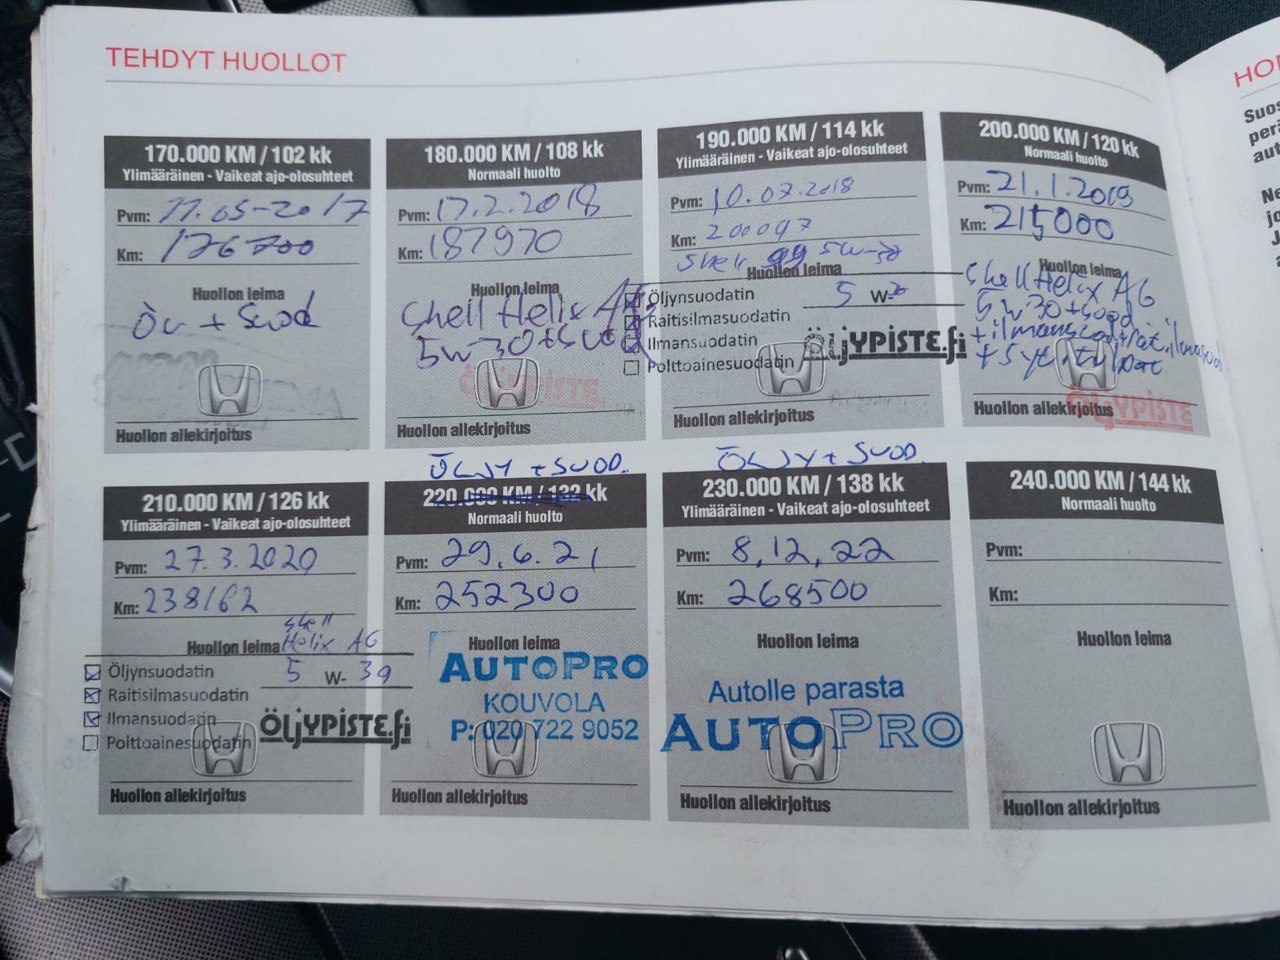 TEHDYT HUOLLOT
170.000 KM / 102 kk
Ylimääräinen - Vaikeat ajo-olosuhteet
Pvm: 11.05-2017
Km: 176700
Huollon leima
Öv + Suod
Huollon allekirjoitus
180.000 KM / 108 kk
Normaali huolto
Pvm: 17.2.2018
Km: 187970
Huollon leima
Shell Helix AG
5w30+suod
ÖLJYPISTE
Huollon allekirjoitus
190.000 KM / 114 kk
Ylimääräinen - Vaikeat ajo-olosuhteet
Pvm: 10.07.2018
Km: 200097
Shell 5w-30
Huollon leima
Öljynsuodatin 5 W-
Raitisilmasuodatin
Ilmansuodatin
Polttoainesuodatin
ÖLJYPISTE.fi
Huollon allekirjoitus
200.000 KM / 120 kk
Normaali huolto
Pvm: 21.1.2019
Km: 215000
Huollon leima
Shell Helix AG
5w30+suod
+
+
ÖLJYPISTE
Huollon allekirjoitus
210.000 KM / 126 kk
Ylimääräinen - Vaikeat ajo-olosuhteet
Pvm: 27.3.2020
Km: 238162
Shell
Huollon leima Helix AG
Öljynsuodatin 5 W- 30
Raitisilmasuodatin
Ilmansuodatin
Polttoainesuodatin
ÖLJYPISTE.fi
Huollon allekirjoitus
ÖLJY + SUOD.
220.000 KM / 132 kk
Normaali huolto
Pvm: 29.6.21
Km: 252300
Huollon leima
AUTOPRO
KOUVOLA
P: 020 722 9052
Huollon allekirjoitus
ÖLJY + SUOD.
230.000 KM / 138 kk
Ylimääräinen - Vaikeat ajo-olosuhteet
Pvm: 8,12,22
Km: 268500
Huollon leima
Autolle parasta
AUTOPRO
Huollon allekirjoitus
240.000 KM / 144 kk
Normaali huolto
Pvm:
Km:
Huollon leima
Huollon allekirjoitus